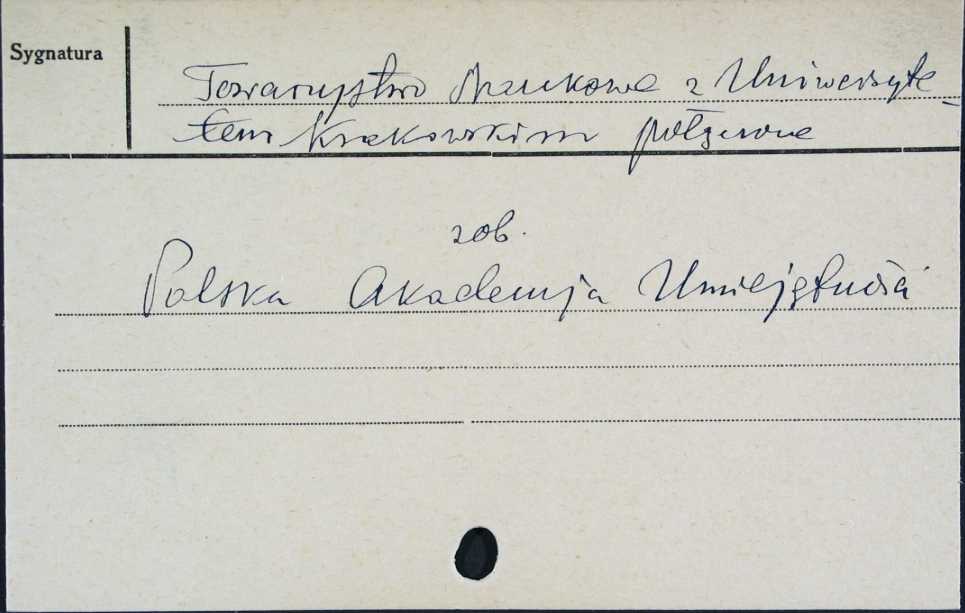 Sygnatura
Towarzystwo Naukowe z Uniwersyte-
tem Krakowskim połączone
zob.
Polska Akademja Umiejętności